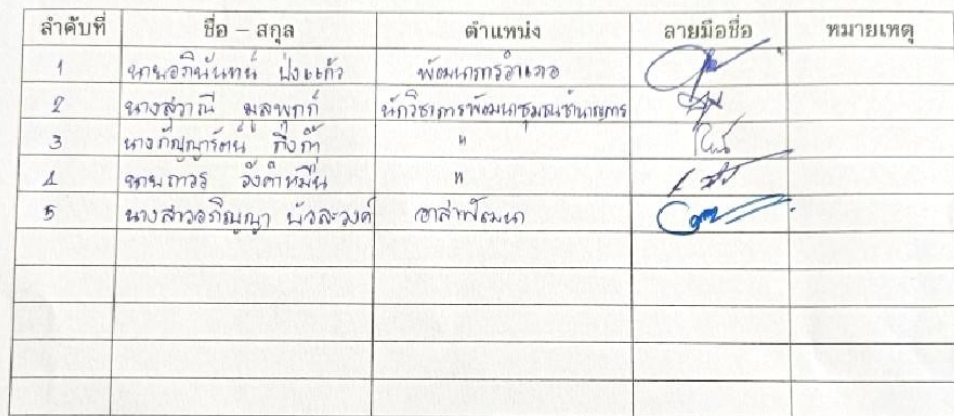 ลำดับที่ ชื่อ – สกุล ตำแหน่ง ลายมือชื่อ หมายเหตุ
1 นายอภินันทน์ ปงแก้ว พัฒนาการอำเภอ
2 นางสุวาณี มลพฤกก์ นักวิชาการพัฒนาชุมชนชำนาญการ
3 นางกัญญารัตน์ กิ่งก้ำ "
4 นายถาวร วังคำหมื่น "
5 นางสาวอภิญญา บัวละวงค์ อาสาพัฒนา